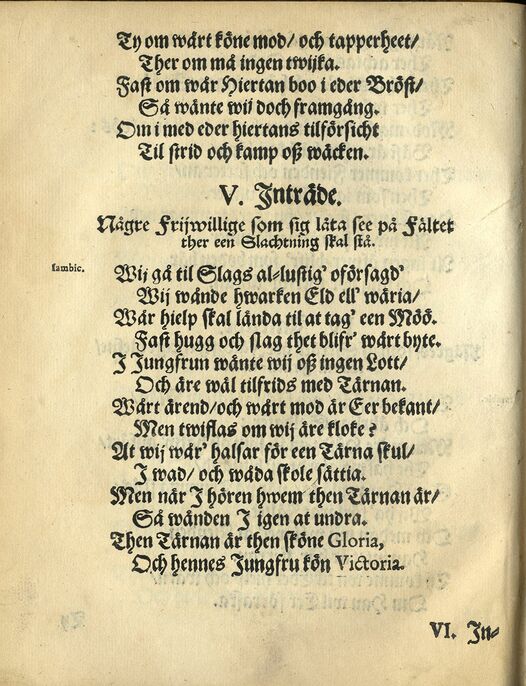 Ty om wårt köne mod/ och tapperheet/
Ther om må ingen twijka.
Fast om wår Hiertan boo i eder Bröst/
Så wänte wij doch framgång.
Om i med eder hiertans tilförsicht
Til strid och kamp oß wäcken.
V. Inträde.
Någre Frijwillige som sig låta see på Fältet
ther een Slachtning skal stå.
Iambic.
Wij gå til Slags al-lustig' oförsagd'
Wij wände hwarken Eld ell' wäria/
Wår hielp skal lända til at tag' een Möö.
Fast hugg och slag thet blifr' wårt byte.
I Jungfrun wänte wij oß ingen Lott/
Och äre wäl tilfrids med Tärnan.
Wårt ärend/och wårt mod är Eer bekant/
Men twiflas om wij äre kloke?
At wij wår' halsar för een Tärna skul/
I wad/ och wåda skole sättia.
Men når I hören hwem then Tärnan är/
Så wänden I igen at undra.
Then Tärnan är then sköne Gloria,
Och hennes Jungfru kön Victoria.
VI. In-